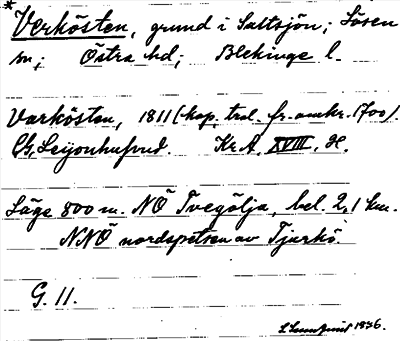 *Verkösten, grund i Saltsjön; Lösen
sn; Östra hd; Blekinge l.
Varkösten, 1811 (kop. trol. fr. omkr. 1700).
Leijonhufvud. Kr. A. XVIII. H.
Läge 800 m. NÖ Tvegölja, bel. 2,1 km.
NNÖ nordspetsen av Tjurkö.
G. 11.
1936.